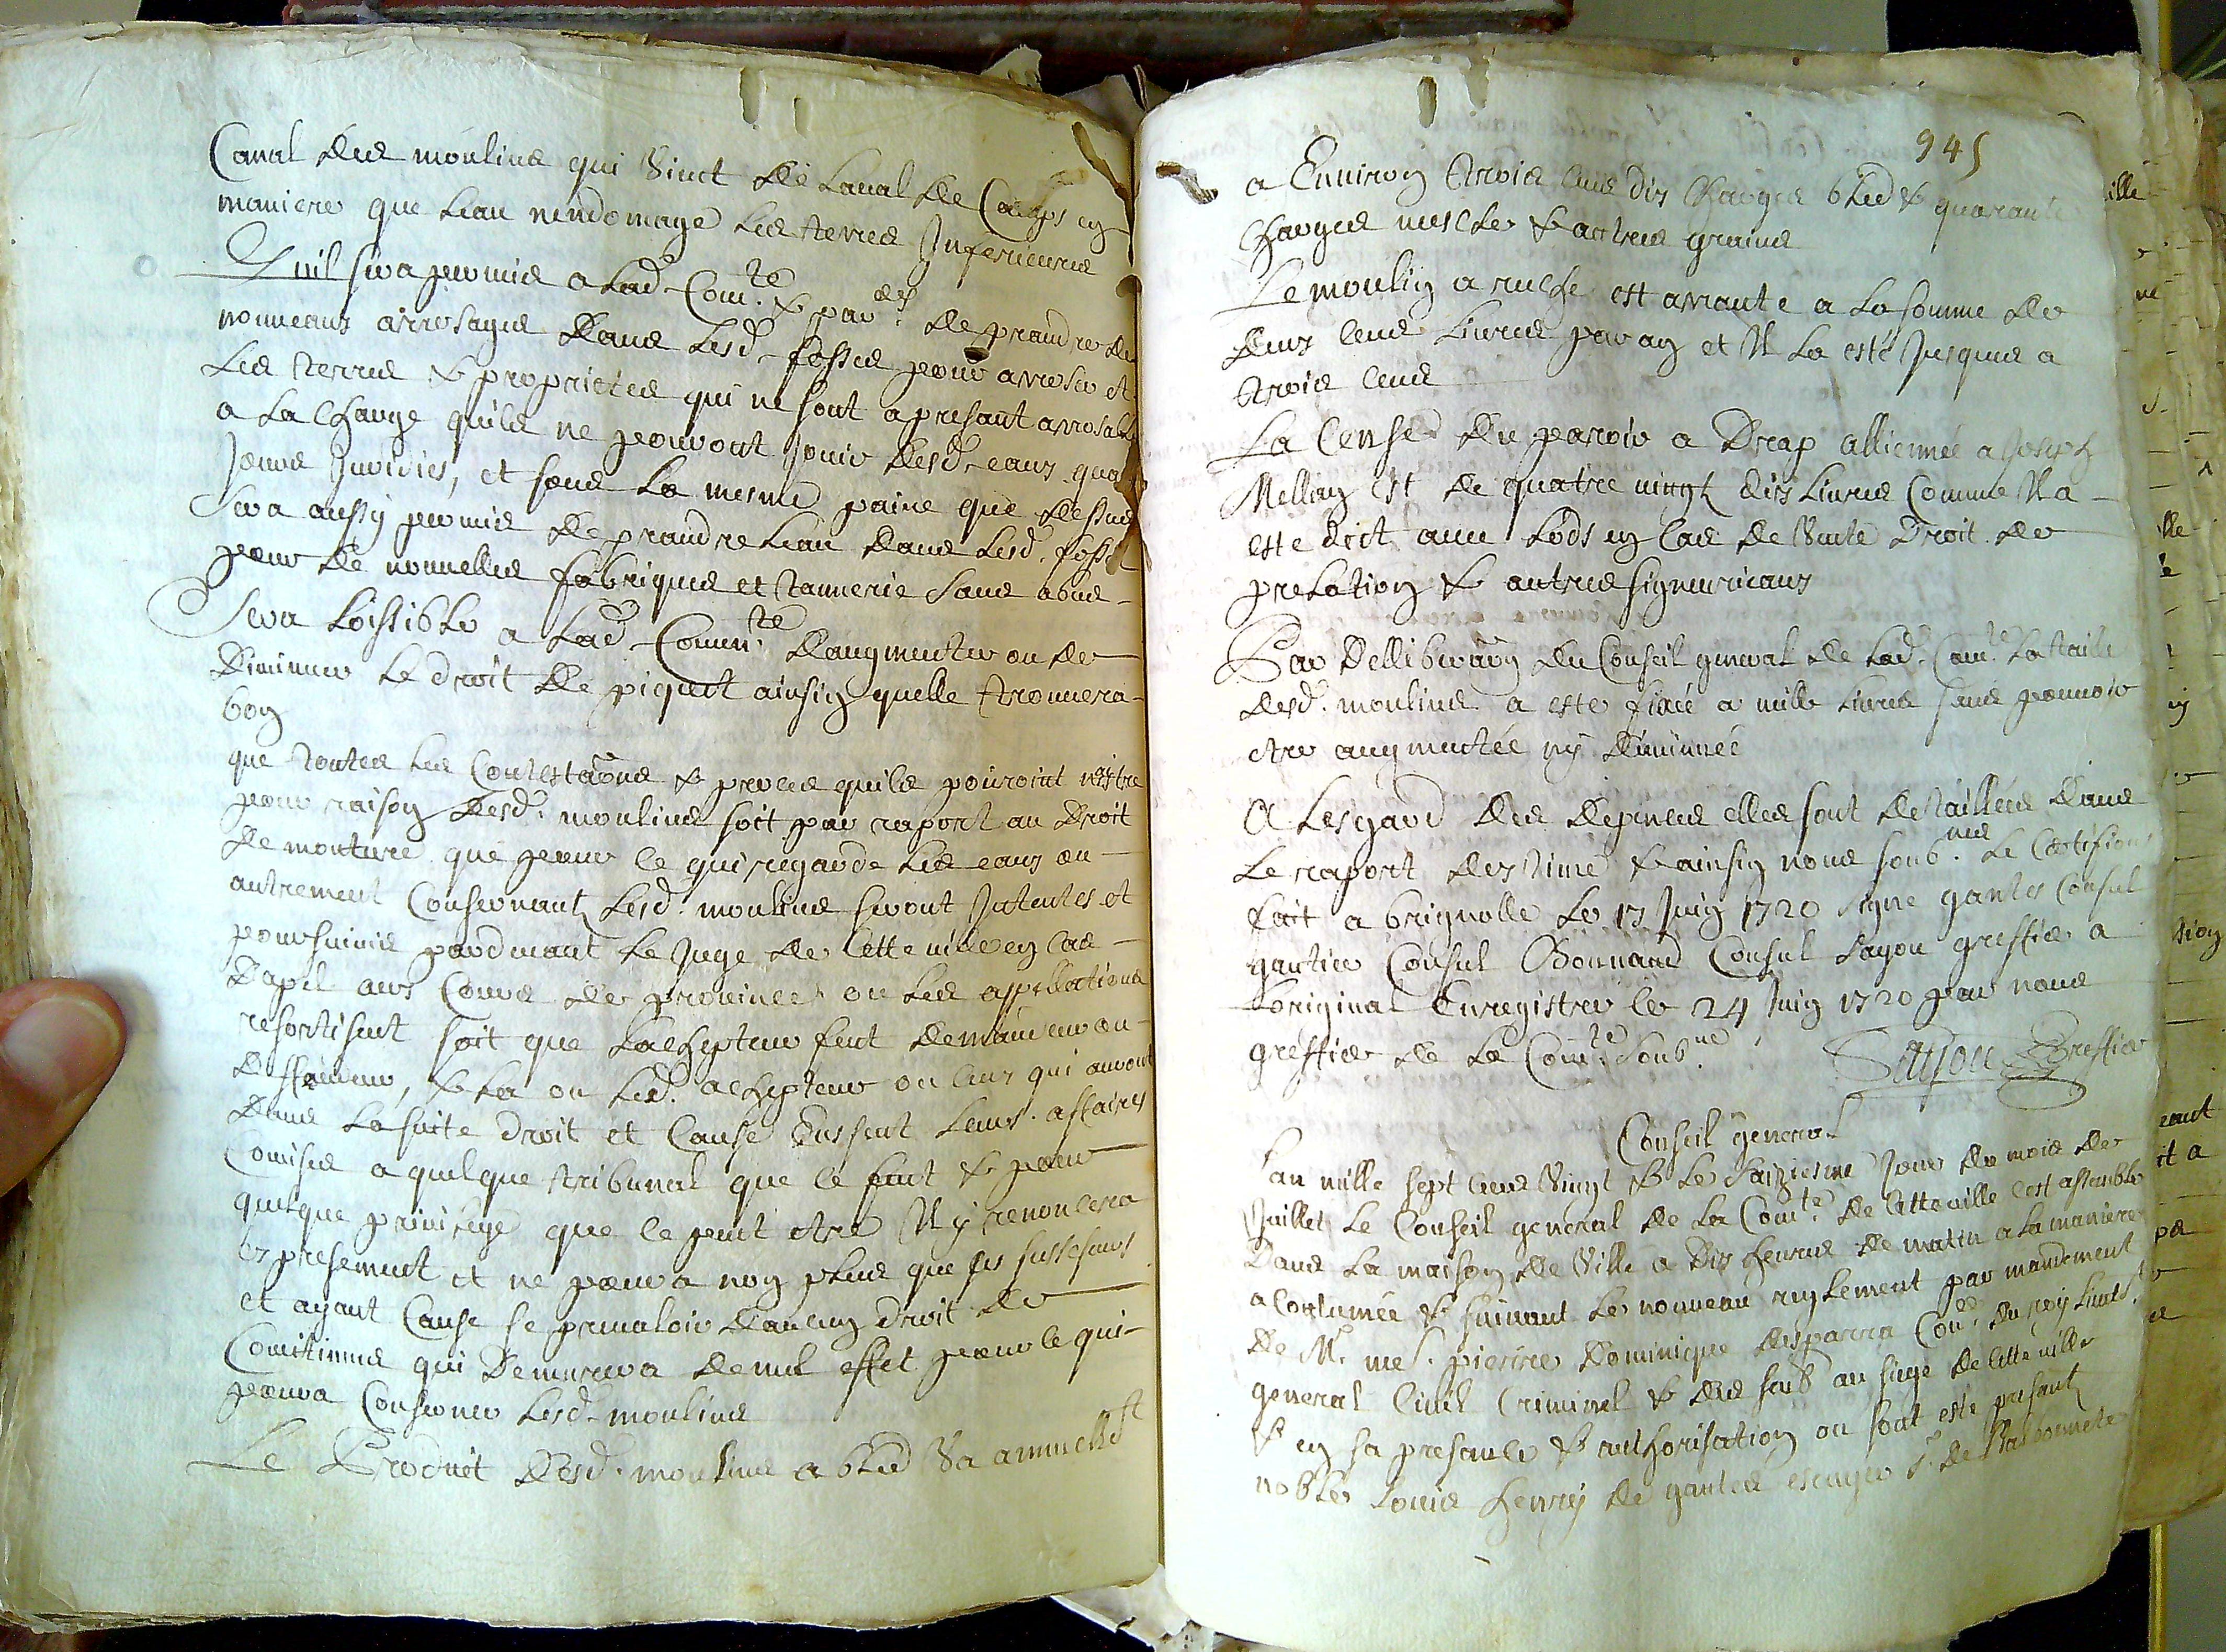 Canal des moulins qui vient de Laval de Camps en
maniere que leau nendomage les terres Inferieures
Quil sera permis a lad. Com.te & par.ers de prandre de
nouveaux arrosages dans lesd. fossés pour arroser et
les terres & proprietes qui ne sont a presant arrosables
a la charge quils ne pouront jouir desd. eaux qu
jours Juridics, et sous la mesme paine que dessus
Sera aussy permis de prandre leau dans lesd. fossés
pour de nouvelles fabriques et tannerie sans abus
Sera loissible a lad. Comm.te daugmenter ou de
Diminuer le droit de piquet ainsin quelle trouvera
bon
que toutes les Contestaons & proces quils pouroint nestre
pour raison desd. moulins soit par raport au droit
de mouture que pour ce qui regarde les eaux ou
autrement Consernant lesd. moulins seront Intentes et
poursuivis pardevant le Juge de cette ville en cas
Dapel aux Cours de province ou les appellations
resortisent soit que lachepteur feut demandeur ou
deffendeur, & la ou led. achepteur ou ceux qui auront
dans la suite droit et cause eussent leurs affaires
Comises a quelque tribunal que ce feut & pour
quelque privilege que ce peut etre Il y renoncera
expresement et ne poura non plus que ses sussesurs
et ayant Cause se prevaloir daucun droit de
Comitimus qui demurera de nul effet pour ce qui
poura Conserner lesd. moulins
Le Produit desd. moulins a bled va annuellent
945
a Environ trois cens dix charges bled & quarante
charges mescle & autres grains
Le moulin a ruche est arrante a la somme de
deux cens livres par an et Il la esté jusques a
trois cens
La Cense du paroir a Drap allienné a Joseph
Mellan est de quatre vingt dix livres Comme Il a
este dict avec lods en cas de vante droit de
prelation & autres signeuriaux
Par Delliberaon du Conseil general de lad. Com.te la taille
desd. moulins a este fixée a mille livres sans pouvoir
etre augmentée ny diminuée
A Lesgard des depences elles sont detaillées dans
le raport destime & ainsin nous soub.nes le Certifions
fait a brignolle le 17 Juin 1720 signe gantes Consul
gautier Consul Bonnaud Consul Sayou greffier a
Loriginal Enregistre le 24 Juin 1720 par nous
greffier de la Com.te soub.ne Sayou Greffier
Conseil general
Lan mille sept cens vingt & le saiziesme jour du mois de
Juillet le Conseil general de la Com.te de cette ville cest assemble
Dans la maison de ville a dix heures de matin a la maniere
acoutumée & suivant le nouveau reglement par mandement
de M. me. pierre Dominique desparra Con.er du roy lieut.
general Civil Criminel & des soub. au siege de cette ville
& en sa presance & authorisation ou sont este presant
noble louis henry de gantes escuyer s.r de Valbonnete